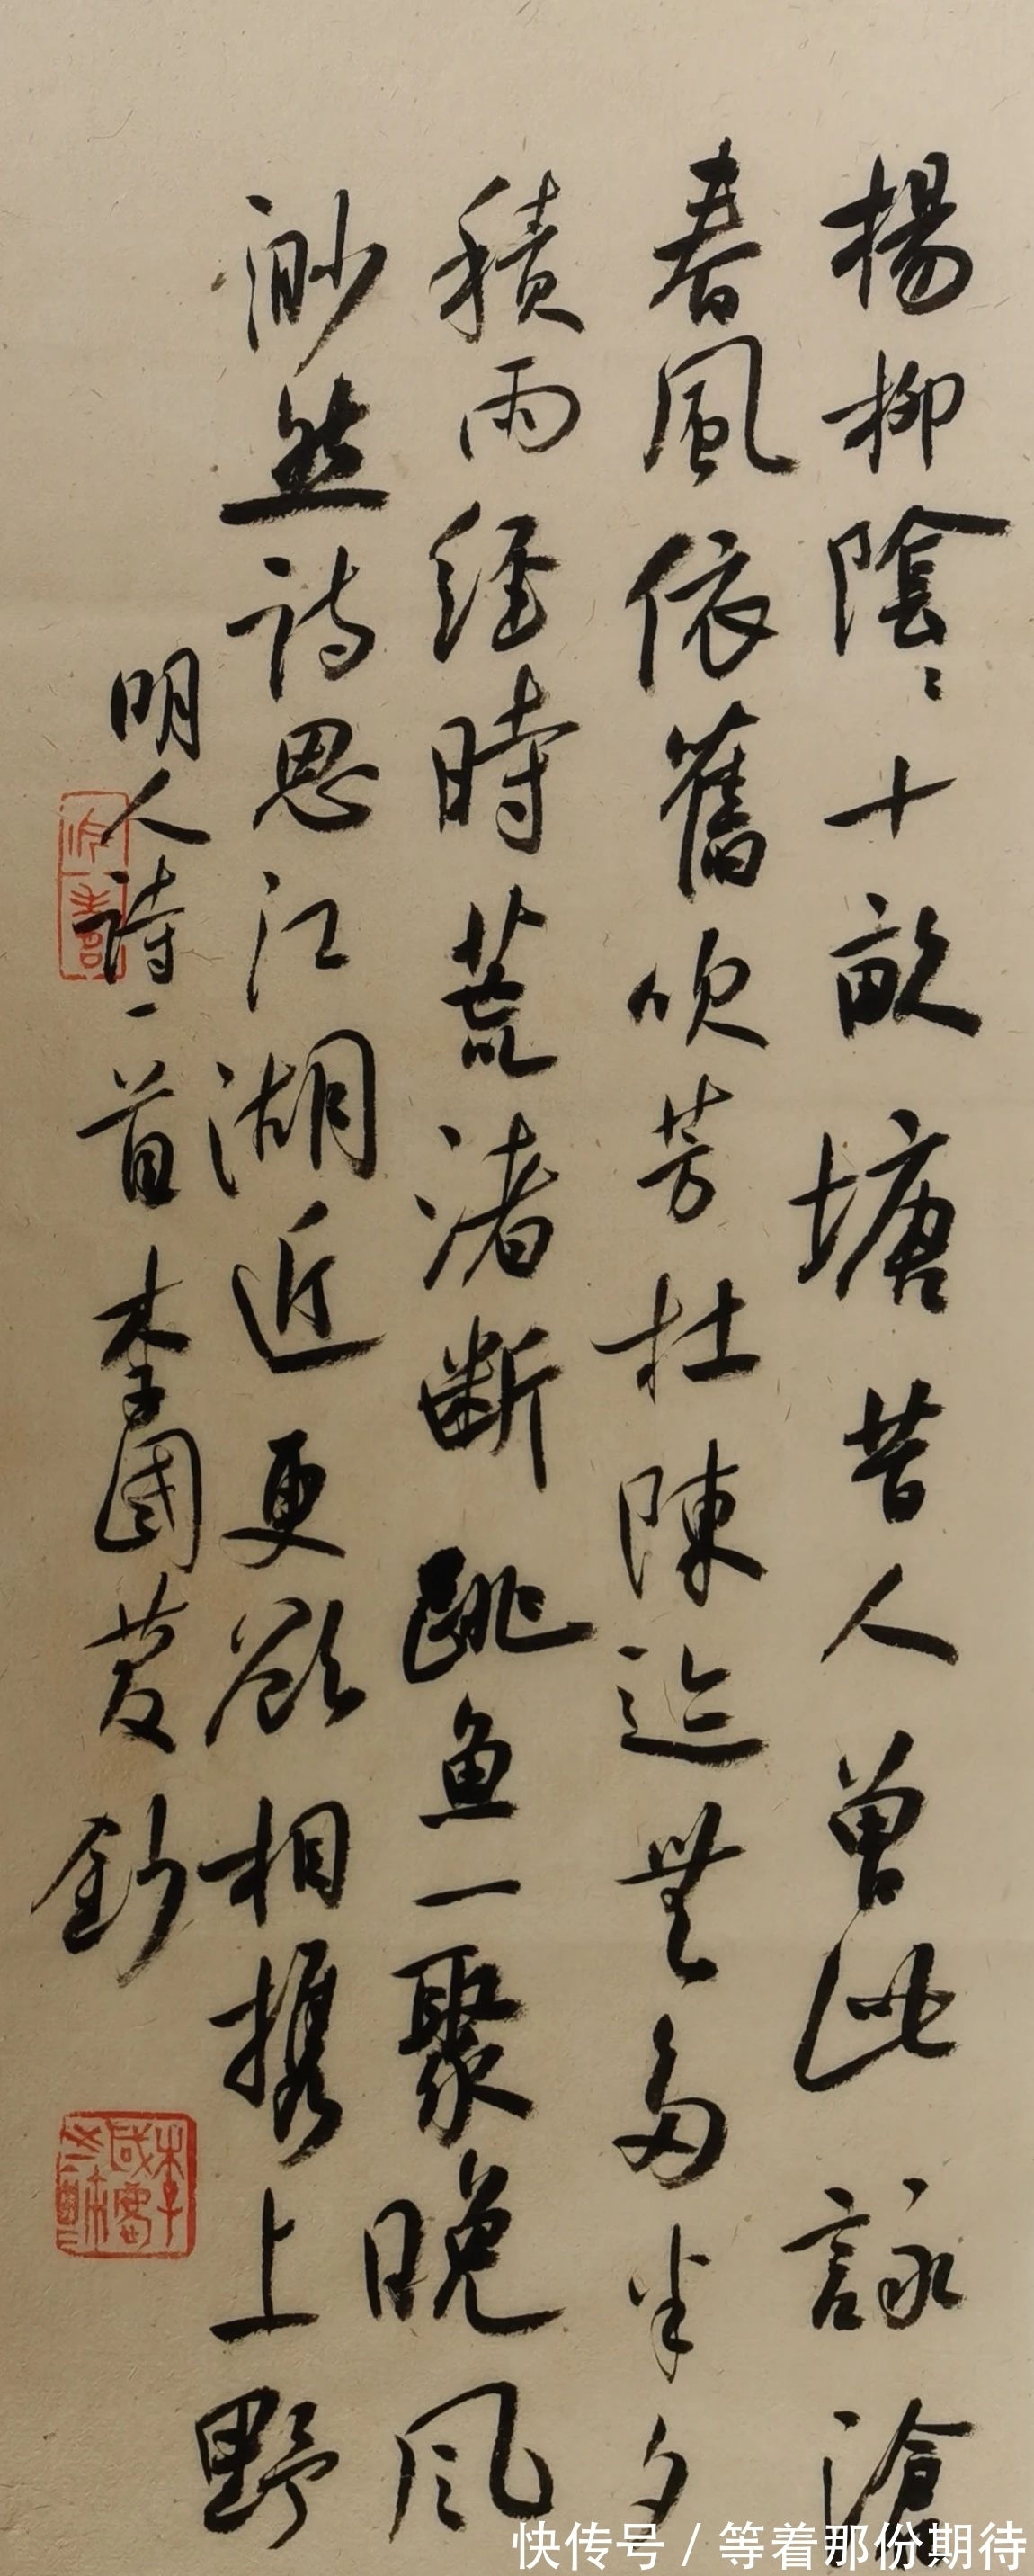 楊柳陰〻十畝塘昔人曾此詠滄
春風依舊吹芳杜陳迹無多半夕
積雨經時荒渚斷跳魚一聚晚風
渺然詩思江湖近更欲相攜上野
明人詩一首李國慶鈔
快传号/等着那份期待